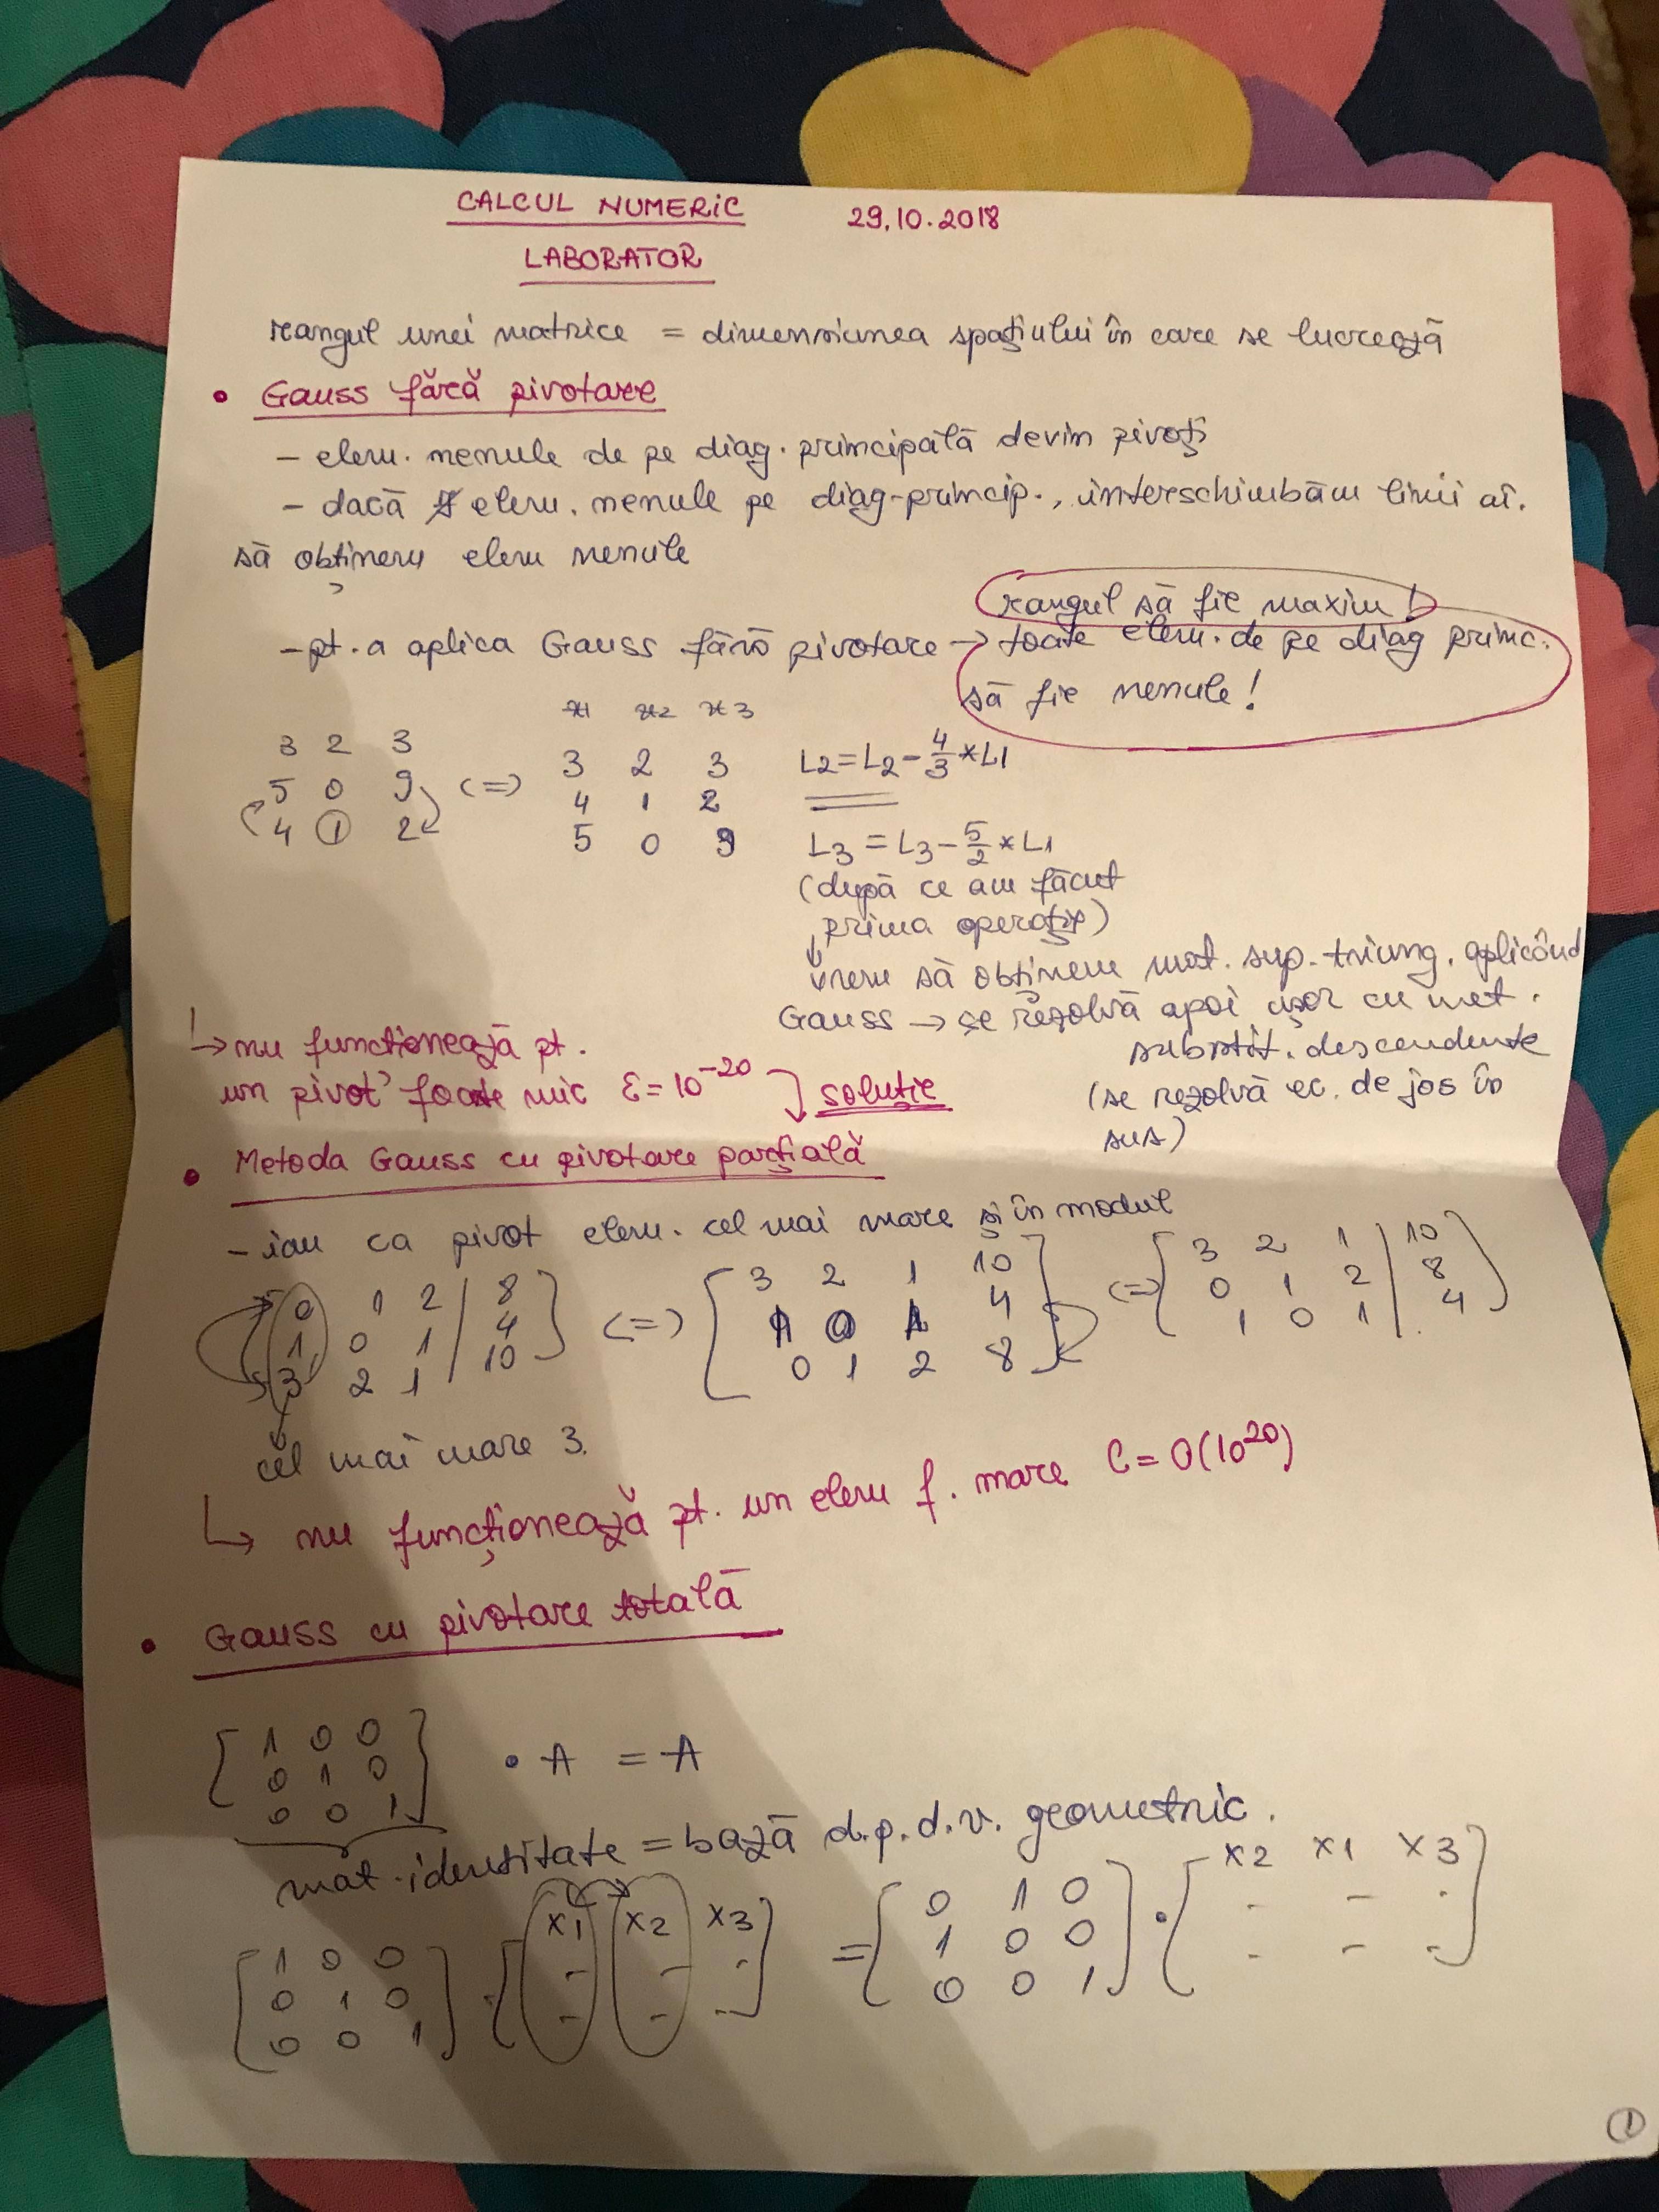 CALCUL NUMERIC 29.10.2018
LABORATOR
rangul unei matrice = dimensiunea spațiului în care se lucrează
• Gauss fără pivotare
- elem. nenule de pe diag. principală devin pivoți
- dacă ∄ elem. nenule pe diag-princip., interschimbăm linii aî.
să obținem elem nenule
rangul să fie maxim!
- pt. a aplica Gauss fără pivotare → toate elem. de pe diag princ.
să fie nenule!
x1 x2 x3
3 2 3
5 0 9
4 1 2
<=>
3 2 3
4 1 2
5 0 9
L2=L2-4/3*L1
L3=L3-5/2*L1
(după ce am făcut
prima operație)
vrem să obținem mat. sup. triung. aplicând
Gauss → se rezolvă apoi ușor cu met.
substit. descendente
(se rezolvă ec. de jos în
sus)
↳ nu funcționează pt.
un pivot foarte mic ε=10^-20 soluție
• Metoda Gauss cu pivotare parțială
- iau ca pivot elem. cel mai mare și în modul
0 1 2 | 8
1 0 1 | 4
3 2 1 | 10
<=>
3 2 1 10
1 0 1 4
0 1 2 8
<=>
3 2 1 | 10
0 1 2 | 8
1 0 1 | 4
cel mai mare 3.
↳ nu funcționează pt. un elem f. mare C=O(10^20)
• Gauss cu pivotare totală
1 0 0
0 1 0
0 0 1
• A = A
mat. identitate = bază d.p.d.v. geometric.
1 0 0
0 1 0
0 0 1
•
x1 x2 x3
- - -
- - -
=
0 1 0
1 0 0
0 0 1
•
x2 x1 x3
- - -
- - -
1